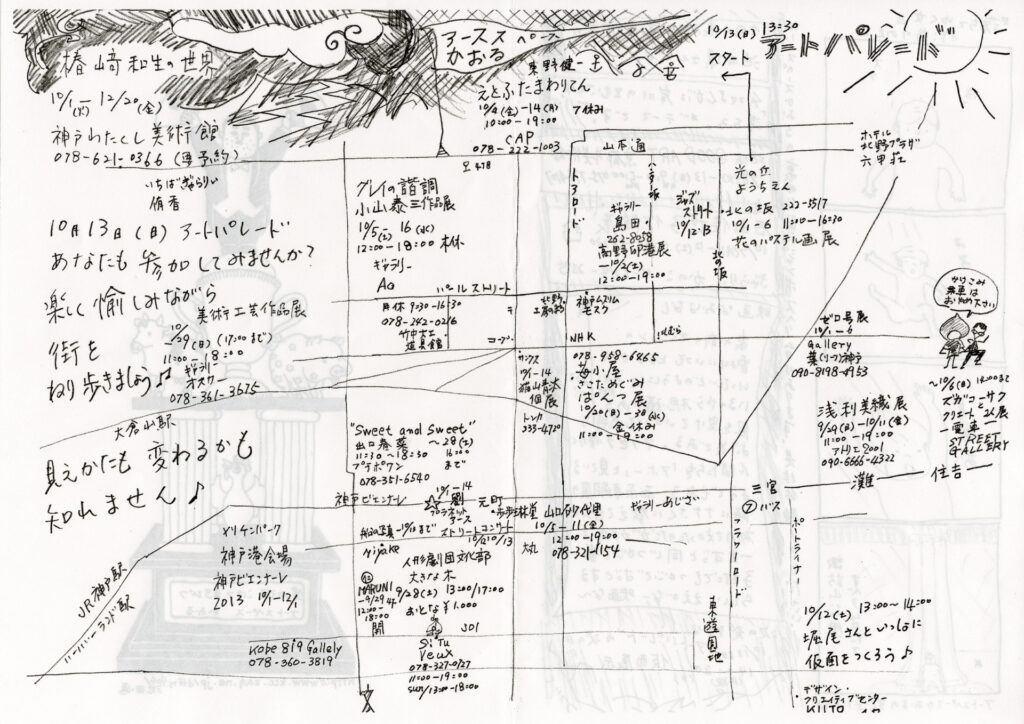 アーススかおる ペーパー
10/13(日) 13:30
アートパレード
スタート
椿﨑和生の世界
10/1(火)ー12/20(金)
神戸わたくし美術館
078-621-0366(要予約)
東野健一
えとふたまわりてん
10/4(金)-14(月) 7休み
10:00-19:00
CAP
078-222-1003
山本通
ホテル
北野プラザ
六甲荘
いちばぎゃらりぃ
侑香
10月13日(日)アートパレード
あなたも参加してみませんか?
楽しく愉しみながら
街を
ねり歩きましょう♪
美術工芸作品展
10/29(日)(17:00まで)
11:00-18:00
ギャラリー
オスカー
078-361-3675
グレイの諧調
小山泰三作品展
10/5(土)-16(水)
12:00-18:00 木休
ギャラリー
Ao
トアロード
ハンター坂
ギャラリー
島田
262-8058
高野卯港展
-10/2(土)
12:00-19:00
ジャズ
ストリート
10/12・13
光の丘
ようちえん
北の坂 222-5517
10/1-6 11:00-16:30
花のパステル画展
北の坂
パールストリート
月休 9:30-16:30
078-242-0216
竹中大工
道具館
神戸ムスリム
モスク
NHK
にしむら
サンクス
個展
トンカ
333-4720
078-958-6465
苺小屋
ささためぐみ
ぱんつ展
10/20(日)-30(水)
金休み
11:00-19:00
ゼロ号展
10/1-6
Gallery
葉(リーフ)神戸
090-8198-4953
かけこみ
乗車は
おやめ下さい
~10/6(日) 18:00まで
ズガコーサク
クリエート2人展
ー電車ー
STREET
GALLERY
浅利美織展
9/29(日)-10/11(金)
11:00-19:00
アトリエ2001
090-6666-4322
大倉山駅
見えかたも変わるかも
知れません♪
"Sweet and Sweet"
出口春菜 ~28(土)
11:30-18:30 16:00
プチポワン まで
078-351-6540
神戸ビエンナーレ
10/1-14
劉
プラネットアース
元町
三宮
灘
住吉
⑦バス
歩歩琳堂 山口紗代里
10/5-11(金)
12:00-19:00
078-321-1154
ギャラリーあじさい
大丸
フラワーロード
ポートライナー
ストリートコンサート
10/12 10/13
メリケンパーク
神戸港会場
神戸ビエンナーレ
2013 10/1-12/1
人形劇団文化部
大きな木
9/28(土) 13:00/17:00
おとな¥1,000
MARUNI
-9/29
12:00-
18:00
JOI
Si Tu
Veux
078-327-0127
11:00-19:00
sun/13:00-18:00
JR神戸駅
ハーバーランド駅
Kobe 819 Gallely
078-360-3819
東遊園地
10/12(土) 13:00~14:00
堀尾さんといっしょに
仮面をつくろう♪
デザイン・
クリエイティブセンター
KIITO